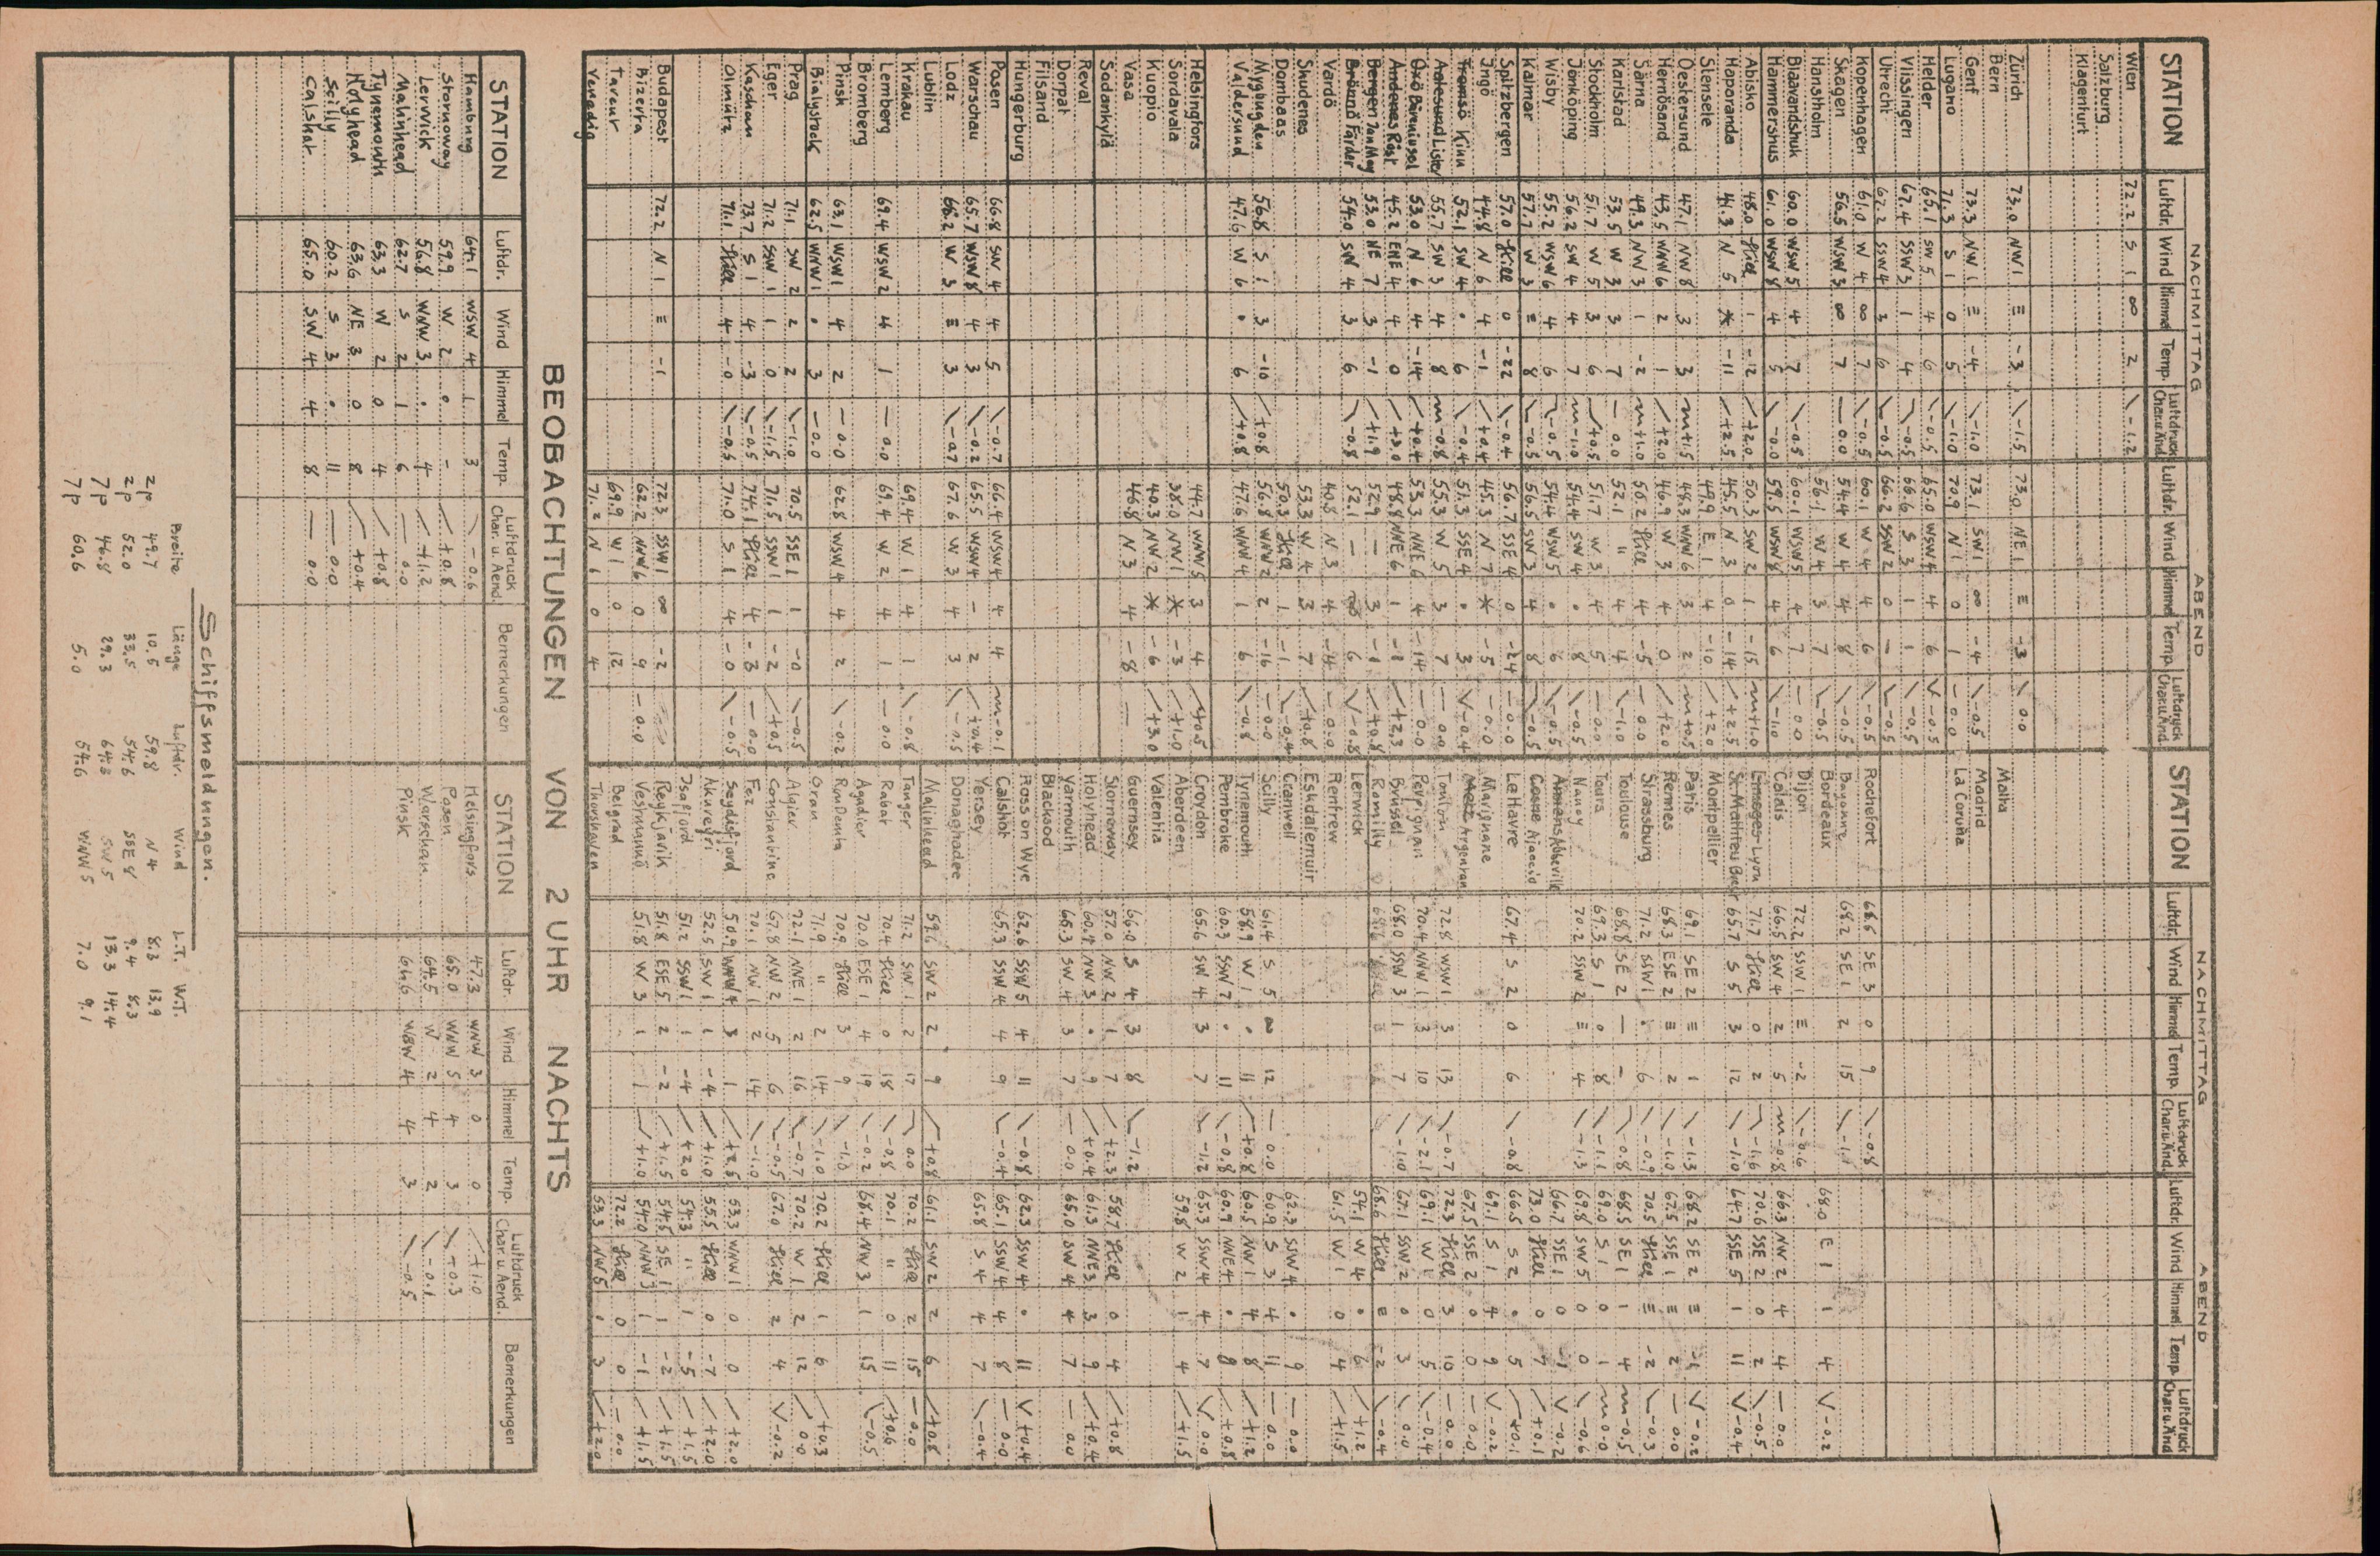 NACHMITTAG ABEND
STATION Luftdr. Wind Himmel Temp. Luftdruck Char.u.Änd. Luftdr. Wind Himmel Temp. Luftdruck Char.u.Änd.
Wien 72.2 S 1 ∞ 2 \ -1.2
Salzburg
Klagenfurt
Zürich 73.0 NW 1 ≡ -3 \ -1.5 73.0 NE 1 ≡ -3 \ 0.0
Bern
Genf 73.3 NW 1 ≡ -4 \ -1.0 73.1 SW 1 ∞ -4 \ -0.5
Lugano 71.3 S 1 0 5 \ -1.0 70.9 N 1 0 1 - 0.0
Helder 65.1 SW 5 4 6 \ -0.5 65.0 WSW 4 4 6 V -0.5
Vlissingen 67.4 SSW 3 1 4 \ -0.5 66.6 S 3 1 1 \ -0.5
Utrecht 67.2 SSW 4 3 6 \ -0.5 66.2 SSW 2 0 - \ -0.5
Kopenhagen 61.0 W 4 ∞ 7 \ -0.5 60.1 W 4 4 6 \ -0.5
Skagen 56.5 WSW 3 ∞ 7 - 0.0 54.4 W 4 4 8 \ -0.5
Hanstholm 56.1 W 4 3 7 \ -0.5
Blaavandshuk 60.0 WSW 5 4 7 \ -0.5 60.1 WSW 5 4 7 - 0.0
Hammershus 61.0 WSW 8 4 5 \ -0.0 59.5 WSW 8 4 6 \ -1.0
Abisko 48.0 Still 1 -12 / +2.0 50.3 SW 2 1 -15 m +1.0
Haparanda 41.3 N 5 * -11 / +2.5 45.5 N 3 0 -14 / +2.5
Stensele 49.9 E 1 4 -10 / +2.0
Oestersund 47.1 NW 8 3 3 m +1.5 48.3 WNW 6 3 2 m +0.5
Hernösand 43.5 WNW 6 2 1 / +2.0 46.9 W 3 4 0 / +2.0
Särna 49.3 NW 3 1 -2 m +1.0 50.2 Still 4 -5 - 0.0
Karlstad 53.5 W 3 3 7 - 0.0 52.1 " 4 4 \ -1.0
Stockholm 51.7 W 5 3 6 / +0.5 51.7 W 3 4 5 - 0.0
Jönköping 56.2 SW 4 4 7 m -1.0 54.4 SW 4 • 8 \ -0.5
Wisby 55.2 WSW 6 4 6 \ -0.5 54.4 WSW 5 • 6 \ -0.5
Kalmar 57.7 W 3 ≡ 8 \ -0.5 56.5 SW 3 4 8 \ -0.5
Spitzbergen 57.0 Still 0 -22 \ -0.4 56.7 SSE 4 0 -24 - 0.0
Ingö 44.8 N 6 4 -1 / +0.4 45.3 N 7 * -5 - 0.0
Tromsö Kinn 52.1 SW 4 • 6 \ -0.4 51.3 SSE 4 • 3 V -0.4
Aalesund Lister 55.7 SW 3 4 8 m -0.8 55.3 W 5 3 7 - 0.0
Oxö Bäreninsel 53.0 N 6 4 -14 / +0.4 53.3 NNE 6 4 -14 - 0.0
Andenes Röst 45.2 ENE 4 4 0 / +3.0 48.8 NNE 6 1 -1 / +2.3
Bergen Jan May 53.0 NE 7 3 -1 / +1.9 52.9 - 3 -1 / +0.8
Brösund Färder 54.0 SW 4 3 6 \ -0.8 52.1 - 6 V -0.8
Vardö 40.8 N 3 4 -4 - 0.0
Skudenes 53.3 W 4 3 7 / +0.8
Dombaas 50.3 Still 1 -1 \ -0.4
Myggbugden 56.8 S 1 3 -10 / +0.8 56.8 WNW 2 2 -16 - 0.0
Valdersund 47.6 W 6 • 6 / +0.8 47.6 WNW 4 1 6 \ -0.8
Helsingfors 44.7 WNW 5 3 4 / +0.5
Sordavala 38.0 NW 1 * -3 / +1.0
Kuopio 40.3 NW 2 * -6 / +3.0
Vasa 46.8 N 3 4 -8 -
Sodankylä
Reval
Dorpat
Filsand
Hungerburg
Posen 66.8 SW 4 4 5 \ -0.7 66.4 WSW 4 4 4 m -0.1
Warschau 65.7 WSW 8 4 3 \ -0.2 65.5 WSW 4 - 2 / +0.4
Lodz 68.2 W 3 ≡ 3 \ -0.7 67.6 W 3 4 3 \ -0.5
Lublin
Krakau 69.4 W 1 4 1 \ -0.8
Lemberg 69.4 WSW 2 4 1 - 0.0 69.4 W 2 4 1 - 0.0
Bromberg
Pinsk 63.1 WSW 1 4 2 - 0.0 62.8 WSW 4 4 2 \ -0.2
Bialystock 62.5 WNW 1 • 3 - 0.0
Prag 71.1 SW 2 2 2 \ -1.0 70.5 SSE 1 1 -0 \ -0.5
Eger 71.2 SSW 1 1 0 \ -1.5 71.5 SSW 1 1 -2 / +0.5
Kaschau 73.7 S 1 4 -3 \ -0.5 74.1 Still 4 -3 - 0.0
Olmütz 71.1 Still 4 -0 \ -0.5 71.0 S 1 4 -0 \ -0.5
Budapest 72.2 N 1 ≡ -1 72.3 SSW 1 ∞ -2
Bizerta 62.2 NNW 6 0 9 - 0.0
Tarent 69.9 W 1 0 12
Venedig 71.2 N 1 0 4
NACHMITTAG ABEND
STATION Luftdr. Wind Himmel Temp. Luftdruck Char.u.Änd. Luftdr. Wind Himmel Temp. Luftdruck Char.u.Änd.
Malta
Madrid
La Coruña
Rochefort 68.6 SE 3 0 9 \ -0.8
Bayonne 68.2 SE 1 2 15 \ -1.1
Bordeaux 68.0 E 1 1 4 V -0.2
Dijon 72.2 SSW 1 ≡ -2 \ -0.6
Calais 66.5 SW 4 2 5 m -0.8 66.3 NW 2 4 4 - 0.0
Limoges Lyon 71.7 Still 0 2 \ -1.6 70.6 SSE 2 0 2 \ -0.5
St. Mathieu Brest 65.7 S 5 3 12 \ -1.0 64.7 SSE 5 1 11 V -0.4
Montpellier
Paris 69.1 SE 2 ≡ 1 \ -1.3 68.2 SE 2 ≡ -1 V -0.2
Rennes 68.3 ESE 2 ≡ 2 \ -1.0 67.5 SSE 1 ≡ 2 - 0.0
Strassburg 71.2 SSW 1 • 6 \ -0.9 70.5 Still ≡ -2 \ -0.3
Toulouse 68.8 SE 2 - - \ -0.8 68.5 SE 1 1 4 m -0.5
Tours 69.3 S 1 0 8 \ -1.1 69.0 S 1 0 1 m 0.0
Nancy 70.2 SSW 2 ≡ 4 \ -1.3 69.8 SW 5 0 0 \ -0.6
Amiens Abbeville 66.7 SSE 1 0 1 V -0.2
Cosne Ajaccio 73.0 Still 0 7 / +0.1
Le Havre 67.4 S 2 0 6 \ -0.8 66.5 S 2 • 5 / +0.1
Marignane 69.1 S 1 4 9 V -0.2
Metz Argentan 67.5 SSE 2 0 0 - 0.0
Toulon 72.8 WSW 1 3 13 \ +0.7 72.3 Still 3 10 - 0.0
Perpignan 70.4 NNW 1 3 10 \ -2.1 69.1 W 1 0 5 \ -0.4
Brüssel 68.0 SSW 3 1 7 \ -1.0 67.1 SSW 2 0 3 \ 0.0
Romilly 68.6 Still ≡ -2 \ -0.4
Lerwick 54.1 W 4 • 6 / +1.2
Renfrew 61.5 W 1 0 4 / +1.5
Eskdalemuir
Cranwell 62.3 SSW 4 • 9 - 0.0
Scilly 61.4 S 5 ∞ 12 - 0.0 60.9 S 3 4 11 - 0.0
Tynemouth 58.9 W 1 • 11 / +0.8 60.5 NW 1 4 8 / +1.2
Pembroke 60.3 SSW 7 • 11 \ -0.8 60.9 NNE 4 • 8 / +0.8
Croydon 65.6 SW 4 3 7 \ -1.2 65.3 SSW 4 4 7 V 0.0
Aberdeen 59.8 W 2 1 4 / +1.5
Valentia
Guernsey 66.0 S 4 3 8 \ -1.2
Stornoway 57.0 NW 2 1 7 / +2.3 58.7 Still 0 4 / +0.8
Holyhead 60.4 NW 3 • 9 / +0.4 61.3 NNE 3 3 9 / +0.4
Yarmouth 66.3 SW 4 3 7 - 0.0 65.0 SW 4 4 7 - 0.0
Blackood
Ross on Wye 62.6 SSW 5 4 11 \ -0.8 62.3 SSW 4 • 11 V +0.4
Calshot 65.3 SSW 4 4 9 \ -0.4 65.1 SSW 4 4 8 - 0.0
Yersey 65.8 S 4 4 7 \ -0.4
Donaghadee
Malinhead 59.6 SW 2 2 9 / +0.8 61.1 SW 2 2 6 / +0.8
Tanger 71.2 SW 1 2 17 0.0 70.2 Still 2 15 - 0.0
Rabat 70.4 Still 0 18 \ -0.8 70.1 " 0 11 / +0.6
Agadier 70.0 ESE 1 4 19 \ -0.2 68.4 NW 3 1 15 \ -0.5
70.9 Still 3 9 \ -1.0
Oran 71.9 " 2 14 \ -1.0 70.2 Still 1 6 / +0.3
Algier 72.1 NNE 1 2 16 \ -0.7 70.2 W 1 2 12 / 0.0
Constantine 67.8 NW 2 5 6 \ -0.5 67.0 Still 2 4 V -0.2
Fez 70.1 NW 1 2 14 \ -1.0
Seydisfjord 50.9 WNW 4 3 1 / +2.5 53.3 WNW 1 0 0 / +2.0
Akureyri 52.5 SW 1 1 -4 / +1.0 55.5 Still 0 -7 / +2.0
Isafjord 51.2 SSW 1 1 -4 / +2.0 54.3 " 1 -5 / +1.5
Reykjavik 51.8 ESE 5 2 -2 / +1.5 54.5 SE 1 1 -2 / +1.5
Vestmannö 51.8 W 3 1 1 / +1.0 54.0 NNW 3 1 -1 / +1.5
Belgrad 72.2 Still 0 0 - 0.0
Thorshaven 53.3 NW 5 1 3 / +2.0
BEOBACHTUNGEN VON 2 UHR NACHTS
STATION Luftdr. Wind Himmel Temp. Luftdruck Char. u. Aend. Bemerkungen
Hamburg 64.1 WSW 4 1 3 \ -0.6
Stornoway 59.9 W 2 • - / +0.8
Lerwick 56.8 WNW 3 • 4 / +1.2
Malinhead 62.7 S 2 1 6 - 0.0
Tynemouth 63.3 W 2 0 4 / +0.8
Holyhead 63.6 NE 3 0 8 / +0.4
Scilly 60.2 S 3 • 11 - 0.0
Calshot 65.0 SW 4 4 8 - 0.0
STATION Luftdr. Wind Himmel Temp. Luftdruck Char. u. Aend. Bemerkungen
Helsingfors 47.3 WNW 3 0 0 / +1.0
Posen 65.0 WNW 5 4 3 \ +0.3
Warschau 64.5 W 2 4 2 \ -0.1
Pinsk 64.6 WSW 4 4 3 \ -0.5
Schiffsmeldungen.
Breite Länge Luftdr. Wind L.T. W.T.
2p 49.7 10.5 59.8 N 4 8.3 13.9
2p 52.0 33.5 54.6 SSE 8 9.4 8.3
7p 46.8 29.3 64.3 SW 5 13.3 14.4
7p 60.6 5.0 54.6 WNW 5 7.0 9.1